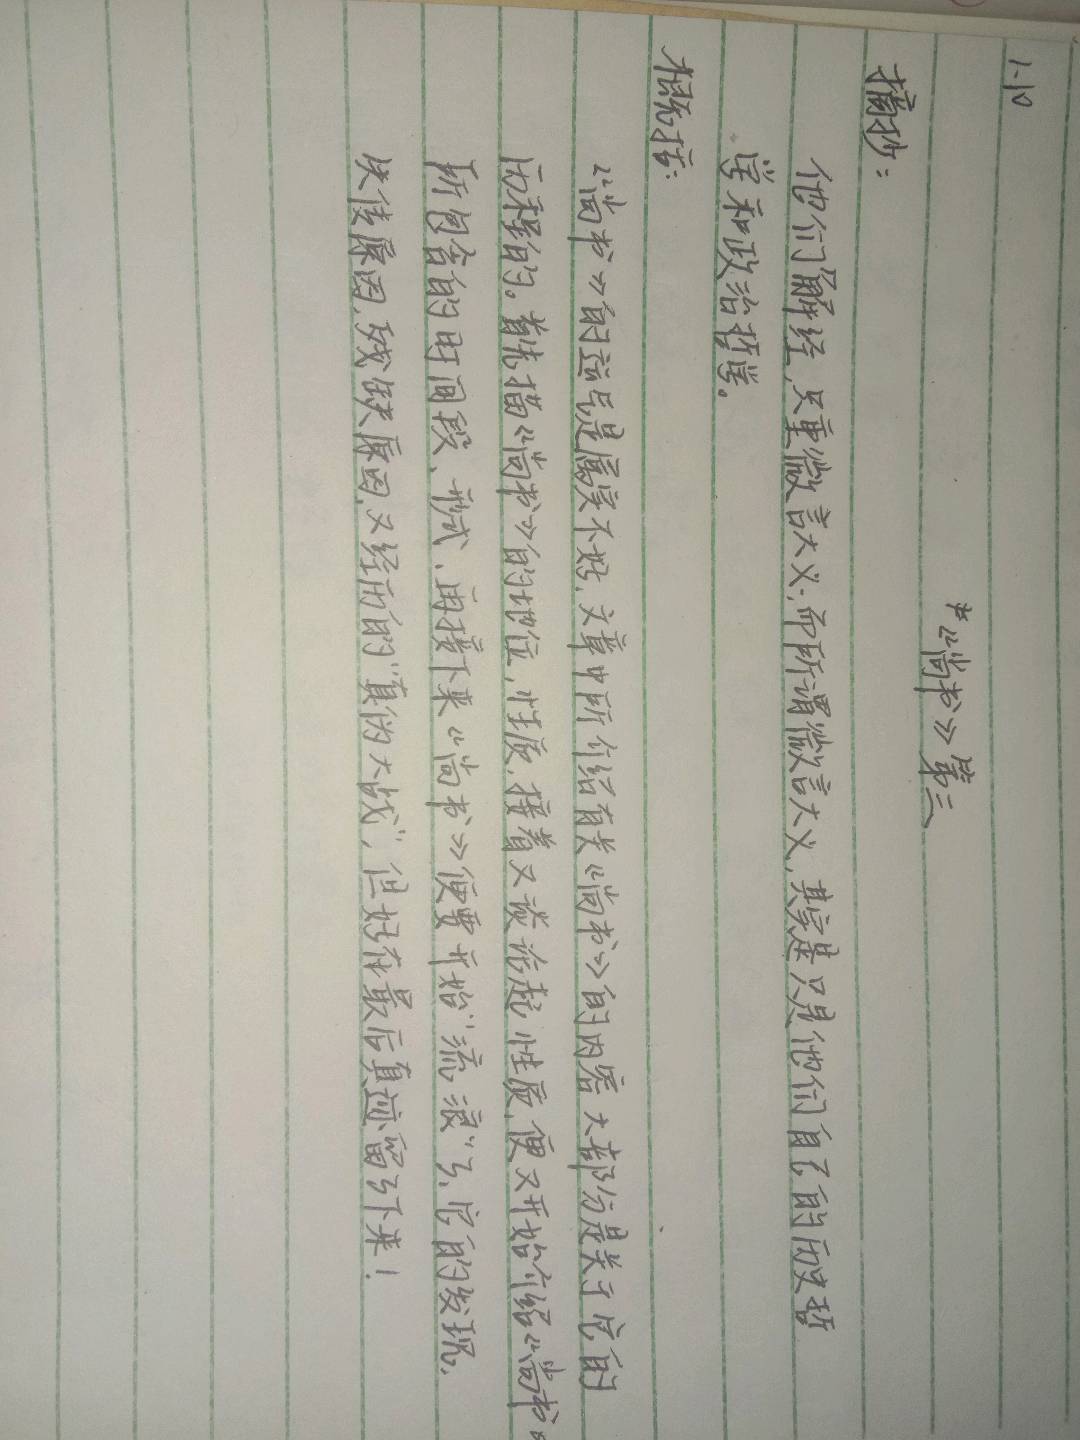 1.10
*《尚书》第三
摘抄:
他们解经,只重微言大义;而所谓微言大义,其实是只是他们自己的历史哲
学和政治哲学。
概括:
《尚书》的运气是属实不好,文章中所介绍有关《尚书》的内容大部分是关于它的
历程的。首先描《尚书》的地位,性质,接着又谈论起性质,便又开始介绍《尚书》
所包含的时间段、形式、再接下来《尚书》便要开始“流浪”了,它的发现,
失传原因,残缺原因,又经历的“真伪大战”,但好在最后真迹留了下来!